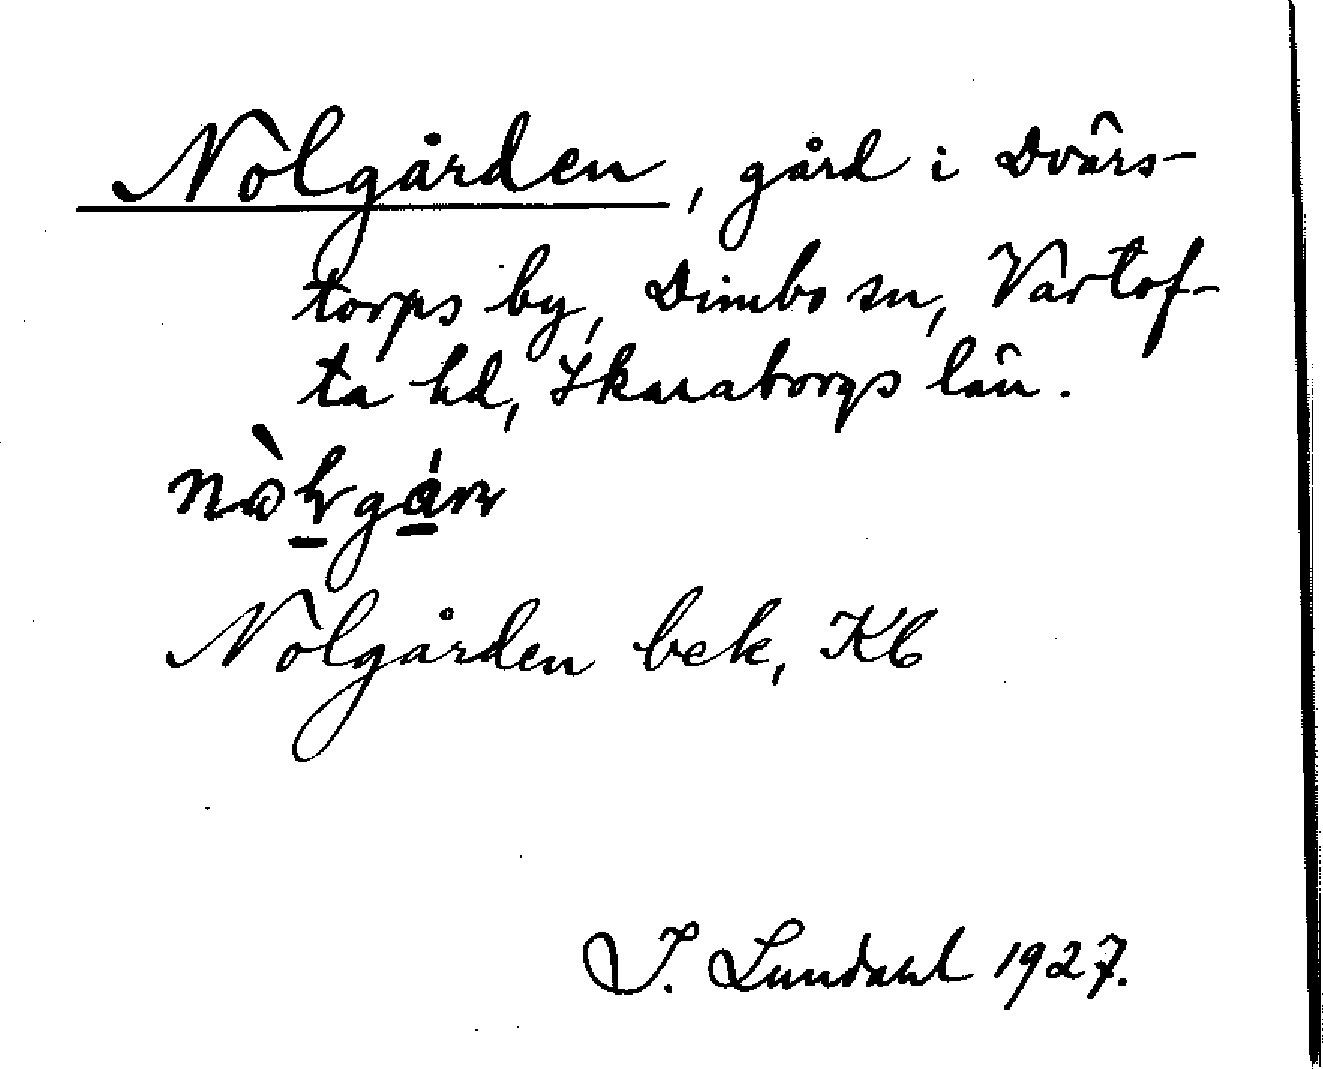 Nolgården, gård i Dvärs-
torps by, Dimbo sn, Vartof-
ta hd, Skaraborgs län.
Nolgården bek, Kb
I. Lundahl 1927.